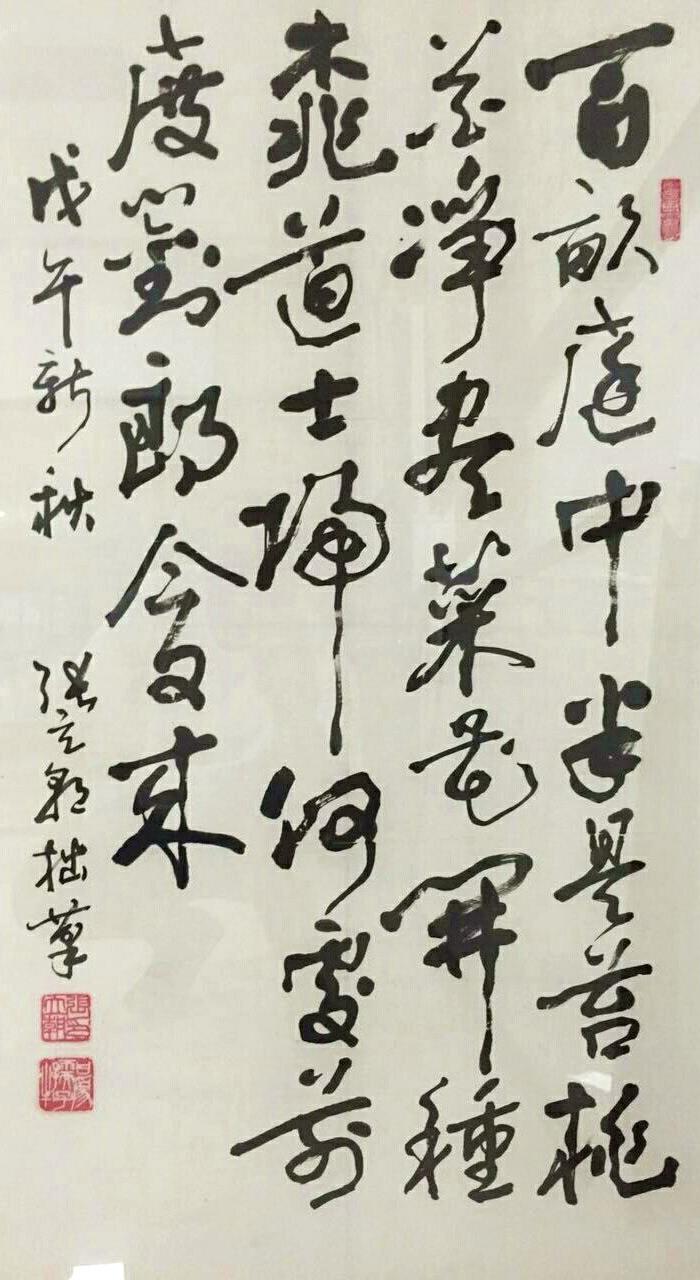 百畝庭中半是苔桃
花淨盡菜花開種
桃道士歸何處前
度劉郎今又來
戊午新秋 張立朝拙筆